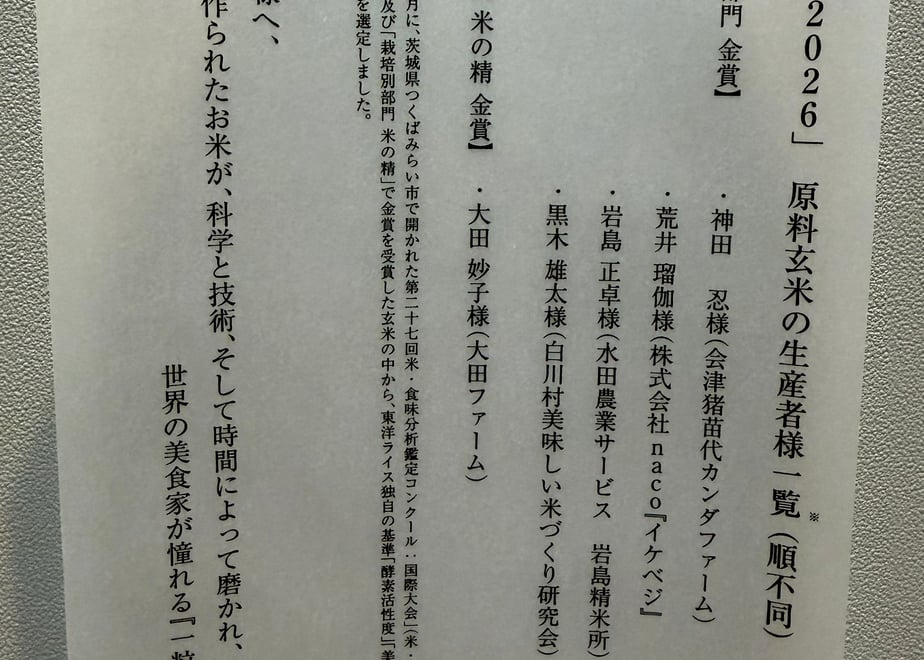 2026」 原料玄米の生産者様一覧※(順不同)
門 金賞】
・神田 忍様(会津猪苗代カンダファーム)
・荒井 瑠伽様(株式会社naco『イケベジ』
・岩島 正卓様(水田農業サービス 岩島精米所)
・黒木 雄太様(白川村美味しい米づくり研究会)
米の精 金賞】
・大田 妙子様(大田ファーム)
月に、茨城県つくばみらい市で開かれた第二十七回米・食味分析鑑定コンクール:国際大会」(米・
及び「栽培別部門 米の精」で金賞を受賞した玄米の中から、東洋ライス独自の基準「酵素活性度」「美
を選定しました。
様へ、
作られたお米が、科学と技術、そして時間によって磨かれ、
世界の美食家が憧れる『一粒